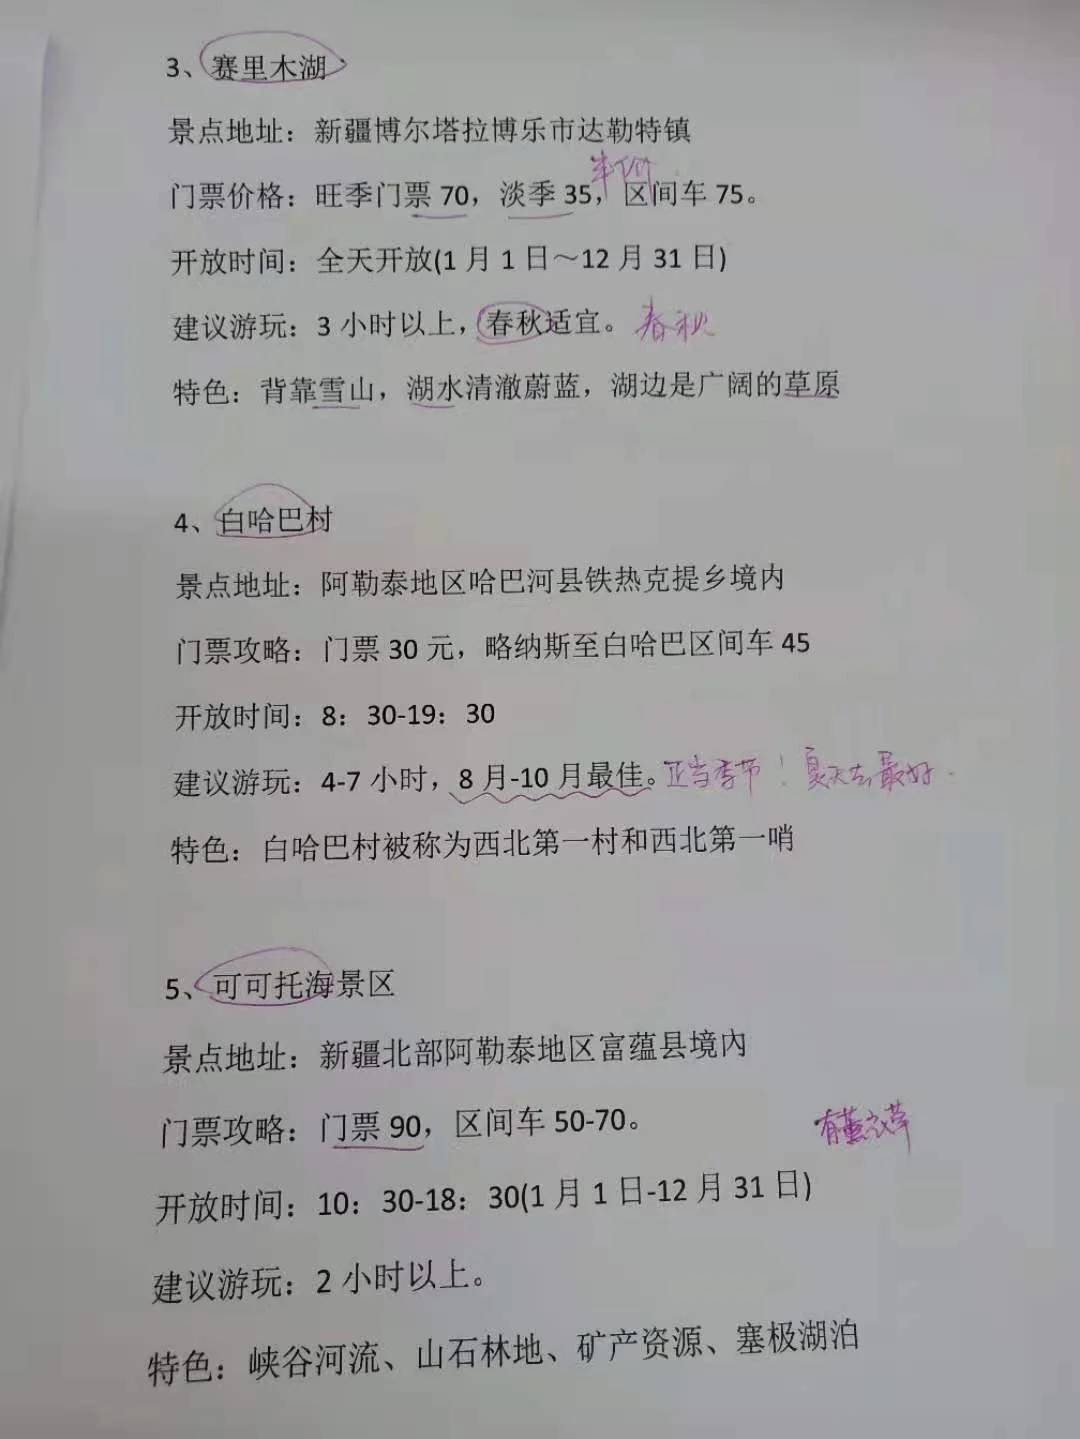 3、赛里木湖
景点地址：新疆博尔塔拉博乐市达勒特镇
半价
门票价格：旺季门票 70，淡季 35，区间车 75。
开放时间：全天开放(1 月 1 日～12 月 31 日)
建议游玩：3 小时以上，春秋适宜。春秋
特色：背靠雪山，湖水清澈蔚蓝，湖边是广阔的草原
4、白哈巴村
景点地址：阿勒泰地区哈巴河县铁热克提乡境内
门票攻略：门票 30 元，略纳斯至白哈巴区间车 45
开放时间：8：30-19：30
建议游玩：4-7 小时，8 月-10 月最佳。正当季节！夏天去最好.
特色：白哈巴村被称为西北第一村和西北第一哨
5、可可托海景区
景点地址：新疆北部阿勒泰地区富蕴县境内
门票攻略：门票 90，区间车 50-70。 有薰衣草
开放时间：10：30-18：30(1 月 1 日-12 月 31 日)
建议游玩：2 小时以上。
特色：峡谷河流、山石林地、矿产资源、塞极湖泊